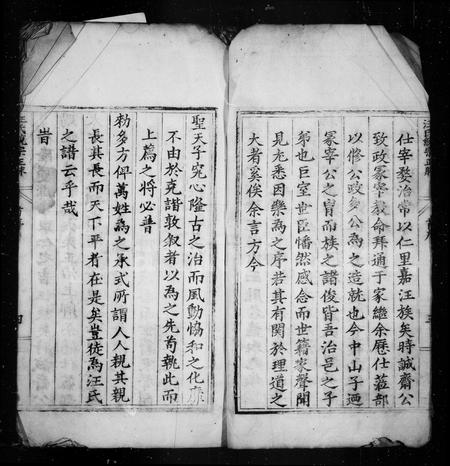 仕宰婺治常以仁里嘉汪族矣時誠齋公
致政冢宰敦命拜通于家繼余歷仕藍部
以修公政
公為之造就也今中山子
冢宰公之冑而族之諸俊皆吾治邑之子
弟也巨室世臣惜然感念而世籍家聲聞
見尤悉因樂為之序若其有關於理道之
大者奚俟余言方今
聖天子究心隆古之治而風動協和之化靡
不由於克諧敦叙者以為之先苟執此而
上薦之將必普
勑多方俾萬姓為之承式所謂人人親其親
長其長而天下平者在是矣豈徒為汪氏
之譜云乎哉
昔